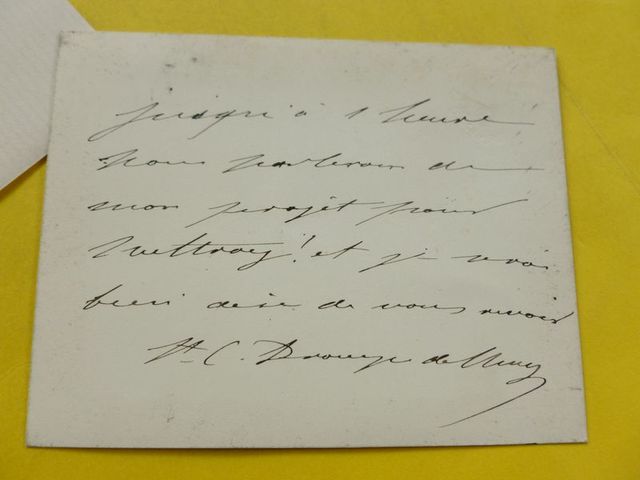 jusqu'à 1 heure
nous parlerons de
mon projet pour
Mettray! et je serai
bien aise de vous revoir
C. Drouyn de Lhuys